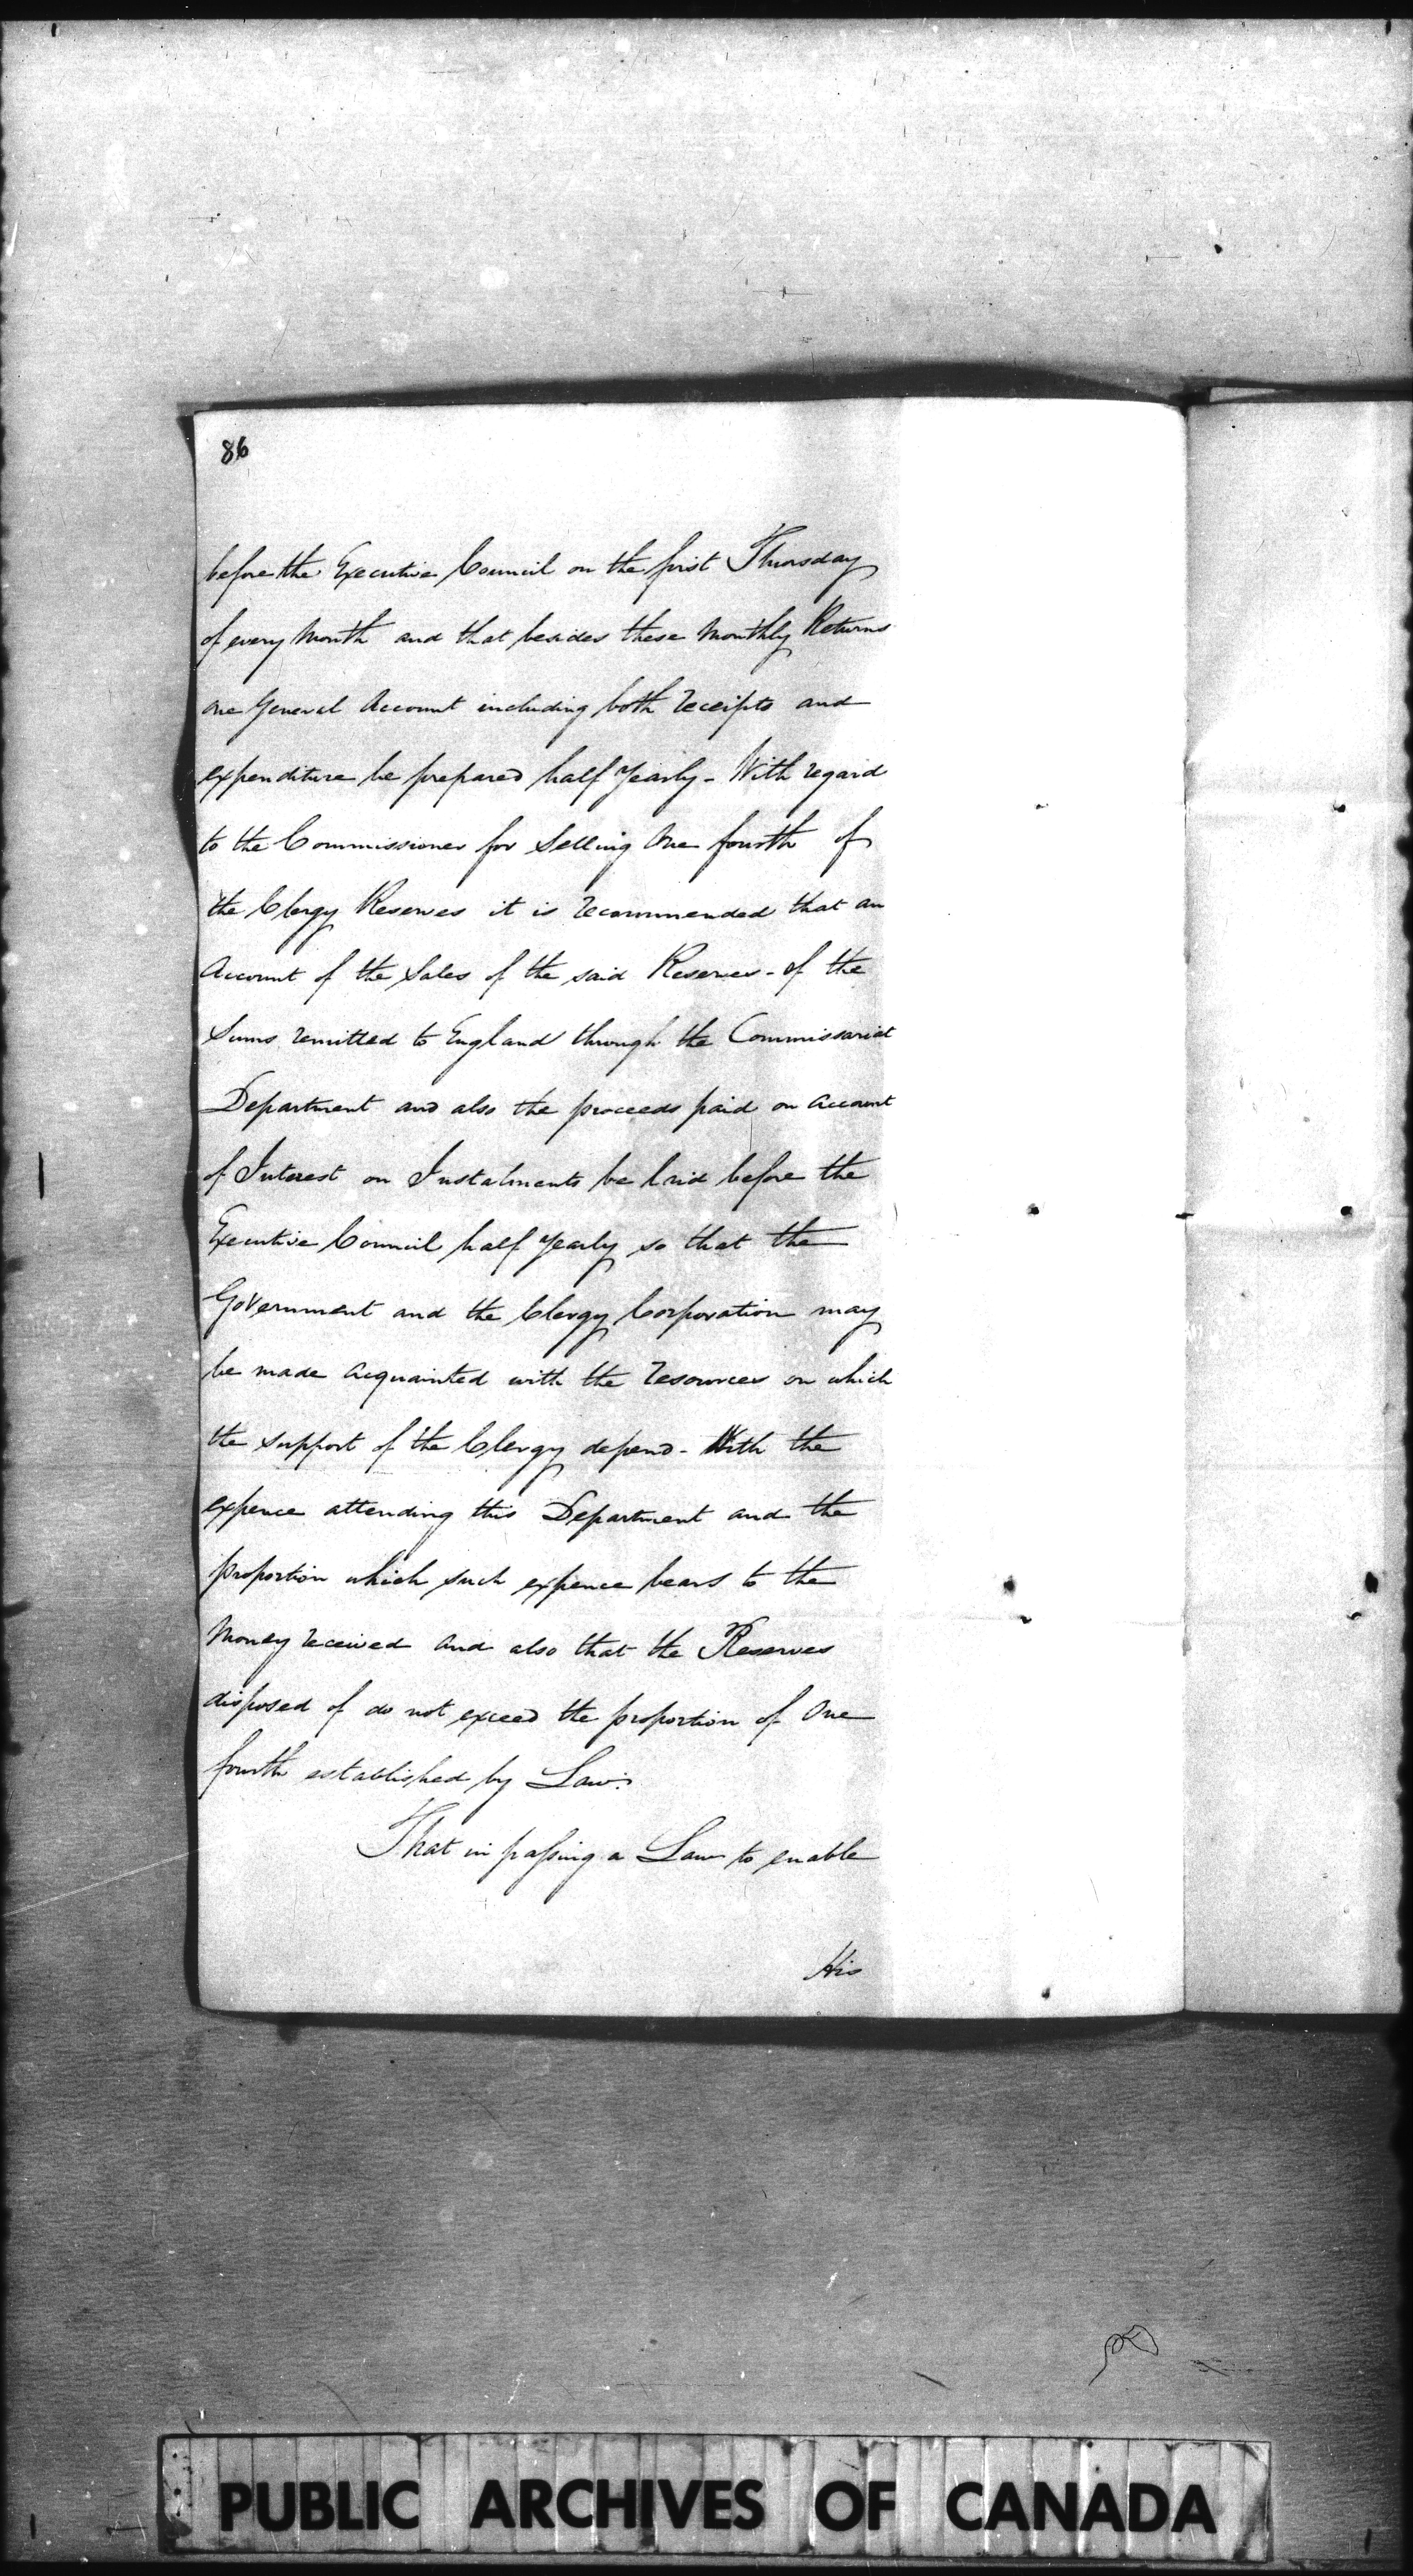 86
before the Executive Council on the first Thursday
of every Month and that besides these Monthly Returns
one General Account including both receipts and
expenditure be prepared half Yearly - With regard
to the Commissioner for Selling One fourth of
the Clergy Reserves it is recommended that an
Account of the Sales of the said Reserves - of the
Sums remitted to England through the Commissariat
Department and also the proceeds paid on Account
of Interest on Instalments be laid before the
Executive Council half Yearly so that the
Government and the Clergy Corporation may
be made acquainted with the resources on which
the support of the Clergy depend - With the
expence attending this Department and the
proportion which such expence bears to the
Money received and also that the Reserves
disposed of do not exceed the proportion of One
fourth established by Law.
That in passing a Law to enable
His
PUBLIC ARCHIVES OF CANADA